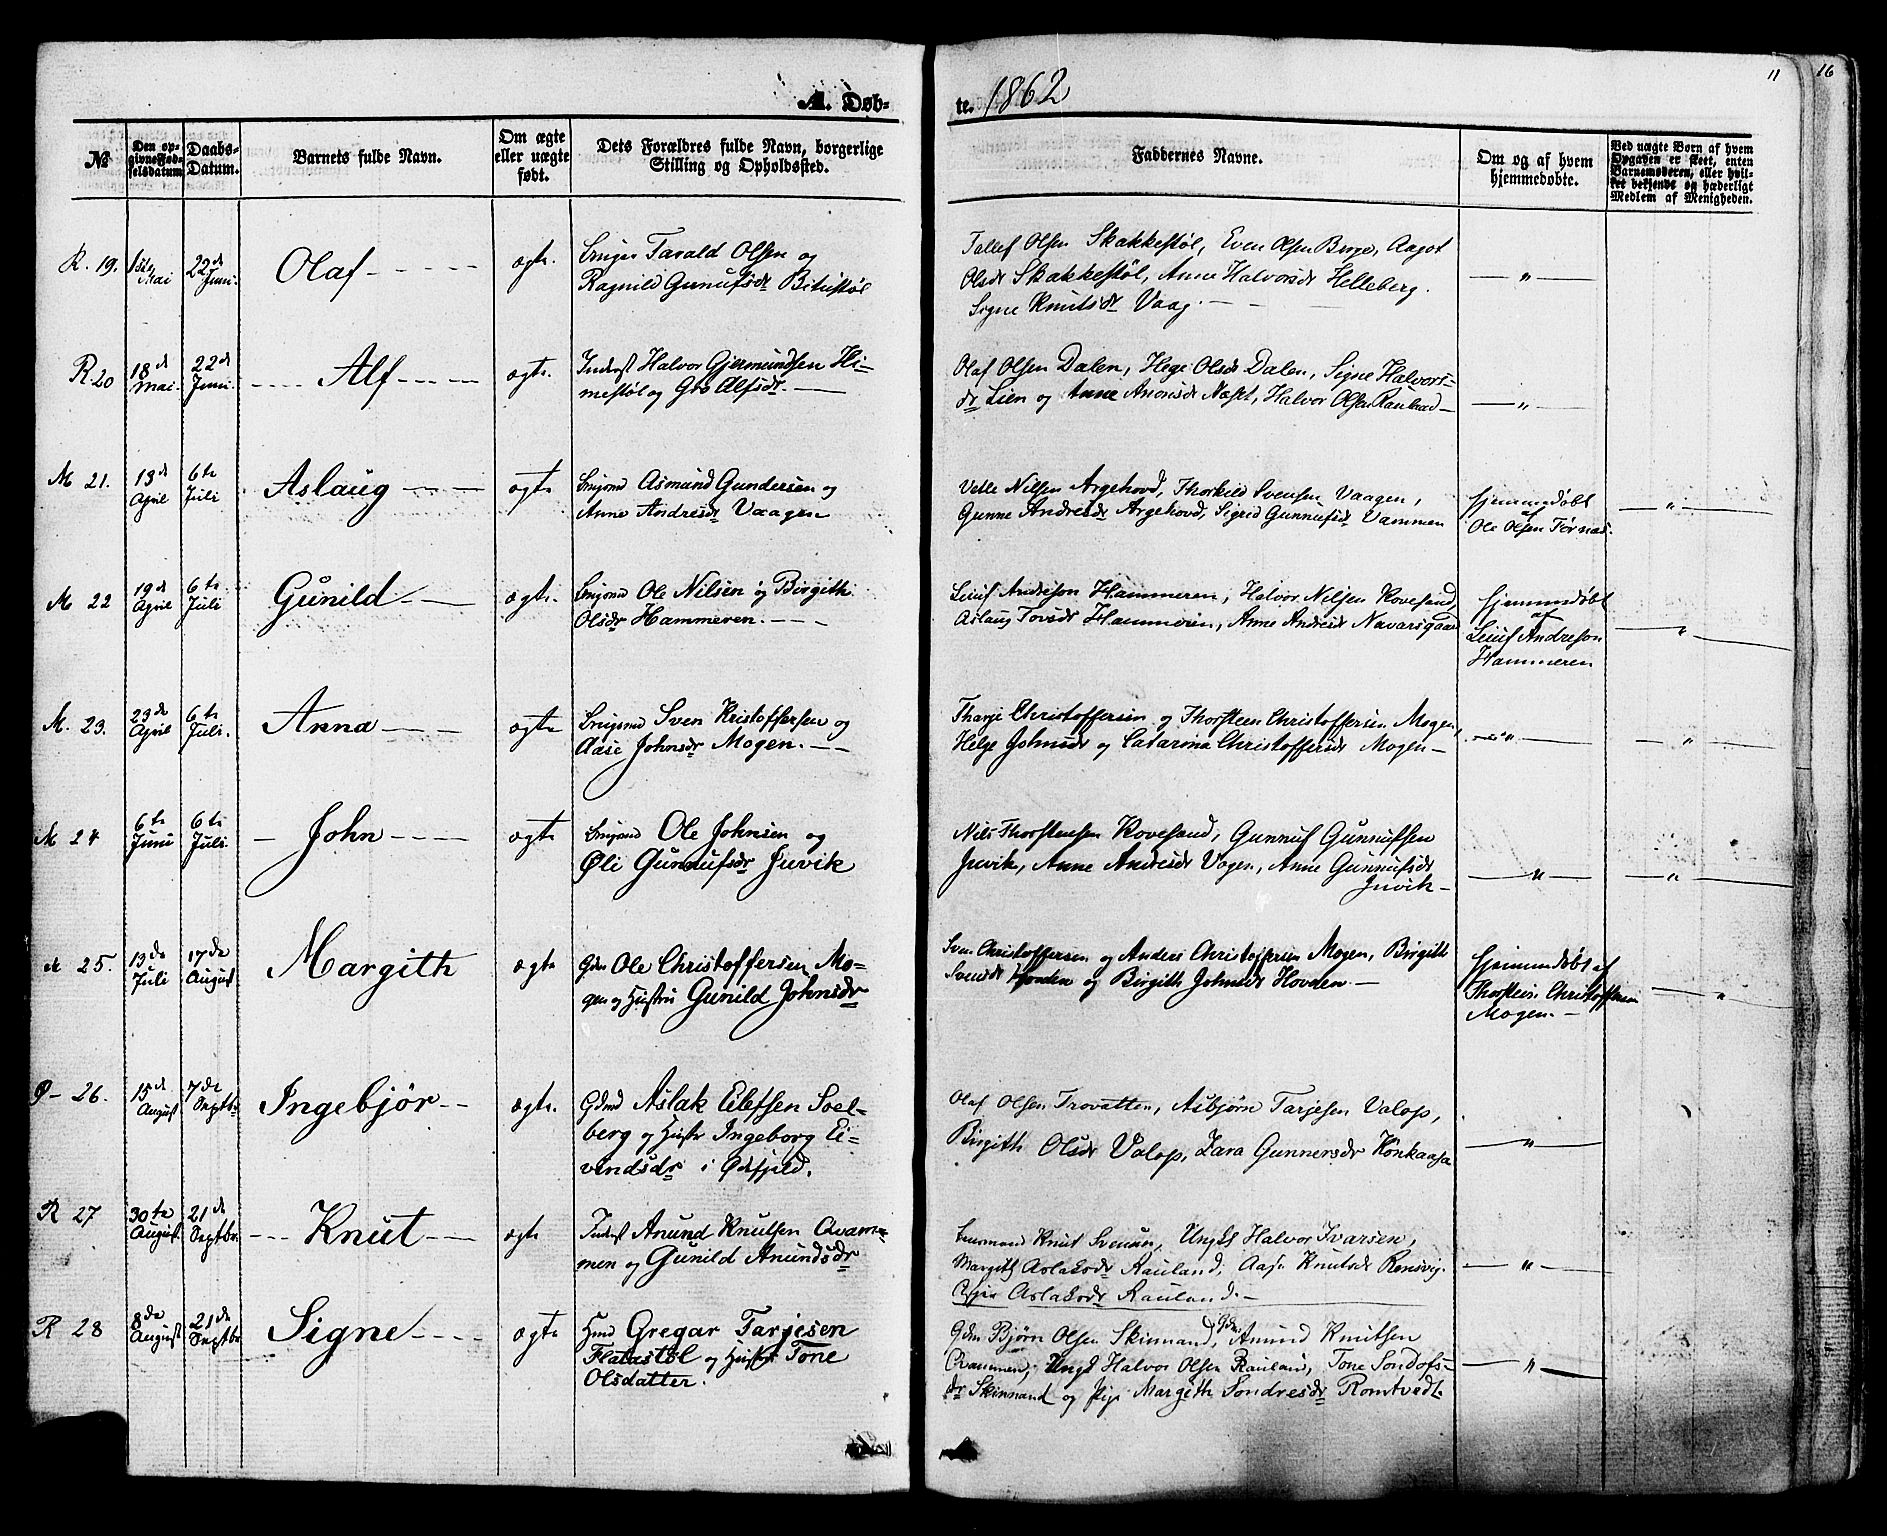 A. Døb-
te. 1862
11
16
№
Den op-
givne Fød-
selsdatum
Daabs-
Datum.
Barnets fulde Navn.
Om ægte
eller uægte
født.
Dets Forældres fulde Navn, borgerlige
Stilling og Opholdssted.
Faddernes Navne.
Om og af hvem
hjemmedøbte.
Ved uægte Børn af hvem
Opgaven er skeet, enten
Barnemoderen, eller hvil-
ket bekjendt og hæderligt
Medlem af Menigheden.
R. 19.
Mai
22de
Juni.
Olaf
ægte.
Tarald Olsen og
Ragnild Gunufsdr Bitustøl
Tallef Olsen Skakkestøl, Even Olsen Berge, Aagot
Olsdr Skakkestøl, Anne Halvorsdr Helleberg.
Signe Knutsdr Vaag.
"
R. 20
18de
Mai.
22de
Juni.
Alf
ægte.
Inderst Halvor Gjermundsen Hi-
mestøl og Gro Alfsdr.
Olaf Olsen Dalen, Hege Olsdr Dalen, Signe Halvors-
dr Lien og Anne Næset, Halvor Olsen Rauland
"
M 21.
13de
April
6te
Juli
Aslaug
ægte
Asmund Gundersen og
Anne Andresdr Vaagen
Velle Nilsen Argehovd, Thorkild Svensen Vaagen,
Gunne Andresdr Argehovd, Sigrid Gunnufsdr Vammen
Hjemmedøbt
af
Ole OlsenFørnæs.
"
M 22
19de
April
6te
Juli
Gunild
ægte.
Ole Nilsen og Birgith
Olsdr Hammeren.
Andreson Hammeren, Halvor Nilsen Kovesand,
Aslaug Tovsdr Hammeren, Anne Andresdr Navarsgaard
Hjemmedøbt
af
Andreson
Hammeren
"
M. 23.
23de
April
6te
Juli.
Anna
ægte
Sven Kristoffersen og
Aase Johnsdr Mogen.
Tharje Christoffersen og Thorsteen Christoffersen Mogen,
Helge Johnsdr og Catarina Christoffersdr Mogen
"
"
M 24
6te
Juni
6te
Juli
John
ægte
Ole Johnsen og
Øli Gunnufsdr Juvik
Nils Thorstensen Kovesand, Gunnuf Gunnufsen
Juvik, Anne Andresdr Vagen, Anne Gunnufsdr
Juvik
"
"
M 25.
13de
Juli
17de
August
Margith
ægte
Gdm Ole Christoffersen Mo-
gen og Hustru Gunild Johnsdr
Sven Christoffersen og Anders Christoffersen Mogen, Birgith
Svensdr Hovden og Birgith Johnsdr Hovden.
Hjemmedøbt af
Thorstein Christoffersen
Mogen.
"
Ø 26.
15de
August
7de
Septbr
Ingebjør
ægte.
Gdmd Aslak Eilefsen Soel-
berg og Hustr Ingeborg Ei-
vindsdr i Øifjeld.
Olaf Olsen Trovatten, Asbjørn Tarjesen Valop,
Birgith Olsdr Valop, Zara Gunnersdr
"
R 27
30te
August.
21de
Septbr.
Knut
ægte
Inderst Anund Knutsen Qvam-
men og Gunild Anundsdr
Lensmand Knut Svensen, Ungk Halvor Ivarsen,
Margith Aslaksdr Rauland, Aase Knutsdr
Aslaksdr Rauland.
"
R 28
8de
August
21de
Septbr.
Signe
ægte
Hmd Gregar Tarjesen
Flatastøl og Hustr Tone
Olsdatter.
Gdm Bjørn Olsen Skinnand, Gdm Anund Knutsen
Qvammen, Ungk Halvor Olsen Rauland, Tone Sondofs-
dr Skinnand og Pige Margith Sondresdr Romtvedt
"